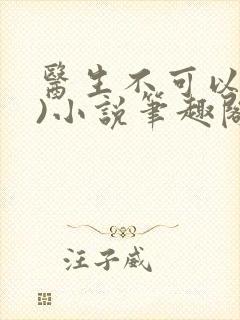 醫生不可以
)小說筆趣閣
汪子威